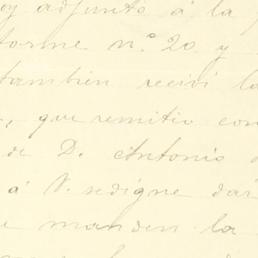 oy adjunto á la p
forme n.º 20 y
tambien recivi la
, que remitio con
de D. Antonio
á V. sedigne dar
e manden la